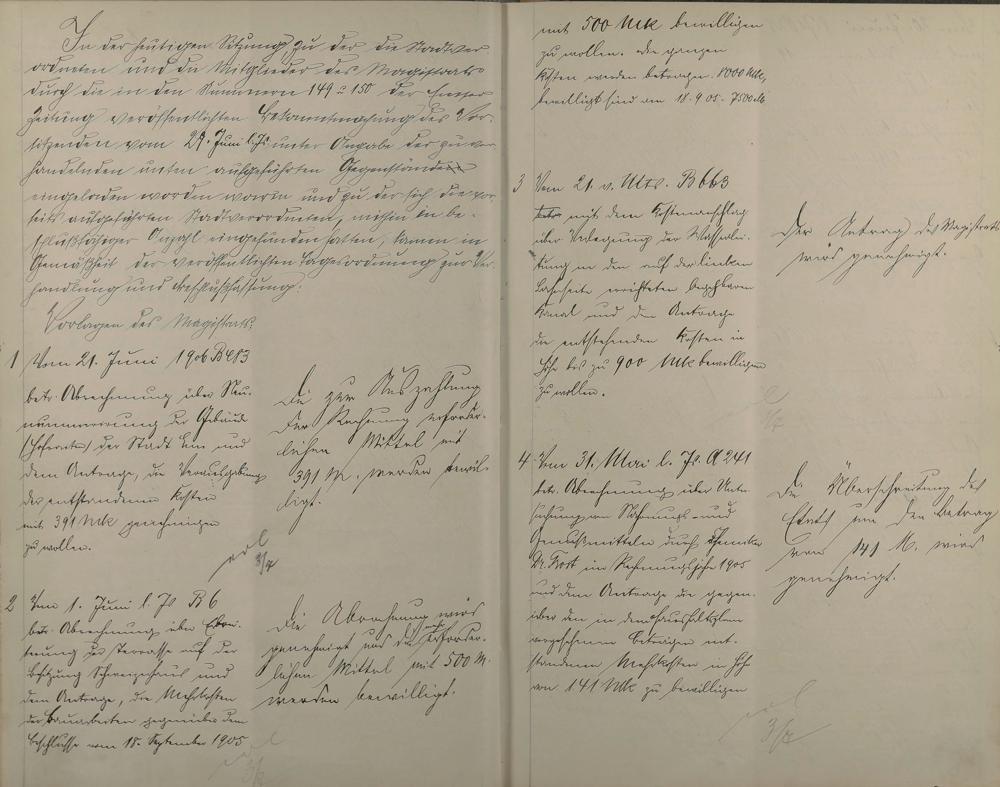 In der heutigen Sitzung, zu der die Stadtver-
ordneten und die Mitglieder des Magistrats
durch die in den Nummern 149 u 150 der Emser
Zeitung veröffentlichten Bekanntmachung des Vor-
sitzenden vom 27. Juni l. Js. unter Angabe der zu ver-
handelnden unten aufgeführten Gegenstände
eingeladen worden waren und zu der sich die vor-
seits aufgeführten Stadtverordneten, mithin in be-
schlußfähiger Anzahl eingefunden hatten, kamen in
Gemäßheit der veröffentlichten Tagesordnung zur Ver-
handlung und Beschlußfassung:
Vorlagen des Magistrats:
1 Vom 21. Juni 1906 B 483
betr. Abrechnung über Neu-
nummerierung der Gebäude
der Stadt Ems und
dem Antrage, die Verausgabung
der entstandenen Kosten
mit 391 Mk genehmigen
zu wollen.
Die zur Auszahlung
der Rechnung erforder-
lichen Mittel mit
391 M. werden bewil-
ligt.
erl
3/7
2 Vom 1. Juni l. Js B 6
betr. Abrechnung über
der Terrasse auf der
Besitzung Schweizerhaus und
dem Antrage, die Mehrkosten
der Bauarbeiten gegenüber dem
Beschlusse vom 18. September 1905
Die Abrechnung wird
genehmigt und die erforder-
lichen Mittel mit 500 M.
werden bewilligt.
erl
3/7
mit 500 Mk bewilligen
zu wollen. Die ganzen
Kosten werden betragen 8000 Mk,
bewilligt sind am 18.9.05. 7500 M
3 Vom 21. v. Mts. B 663
mit dem Kostenanschlag
über Verlegung der Wasserlei-
tung in den auf der linken
Lahnseite errichteten begehbaren
Kanal und dem Antrage
die entstehenden Kosten in
Höhe bis zu 900 Mk bewilligen
zu wollen.
Der Antrag des Magistrats
wird genehmigt.
4 Vom 31. Mai l. Js. A 241
betr. Abrechnung über Unter-
suchung von Nahrungs- und
Genußmitteln durch Chemiker
Dr. im Rechnungsjahr 1905
und dem Antrage die gegen-
über den in dem Haushaltsplan
vorgesehenen Beträgen ent-
standenen Mehrkosten in Höhe
von 141 Mk zu bewilligen
Die Überschreitung des
Etats um den Betrag
von 141 M. wird
genehmigt.
erl
3/7